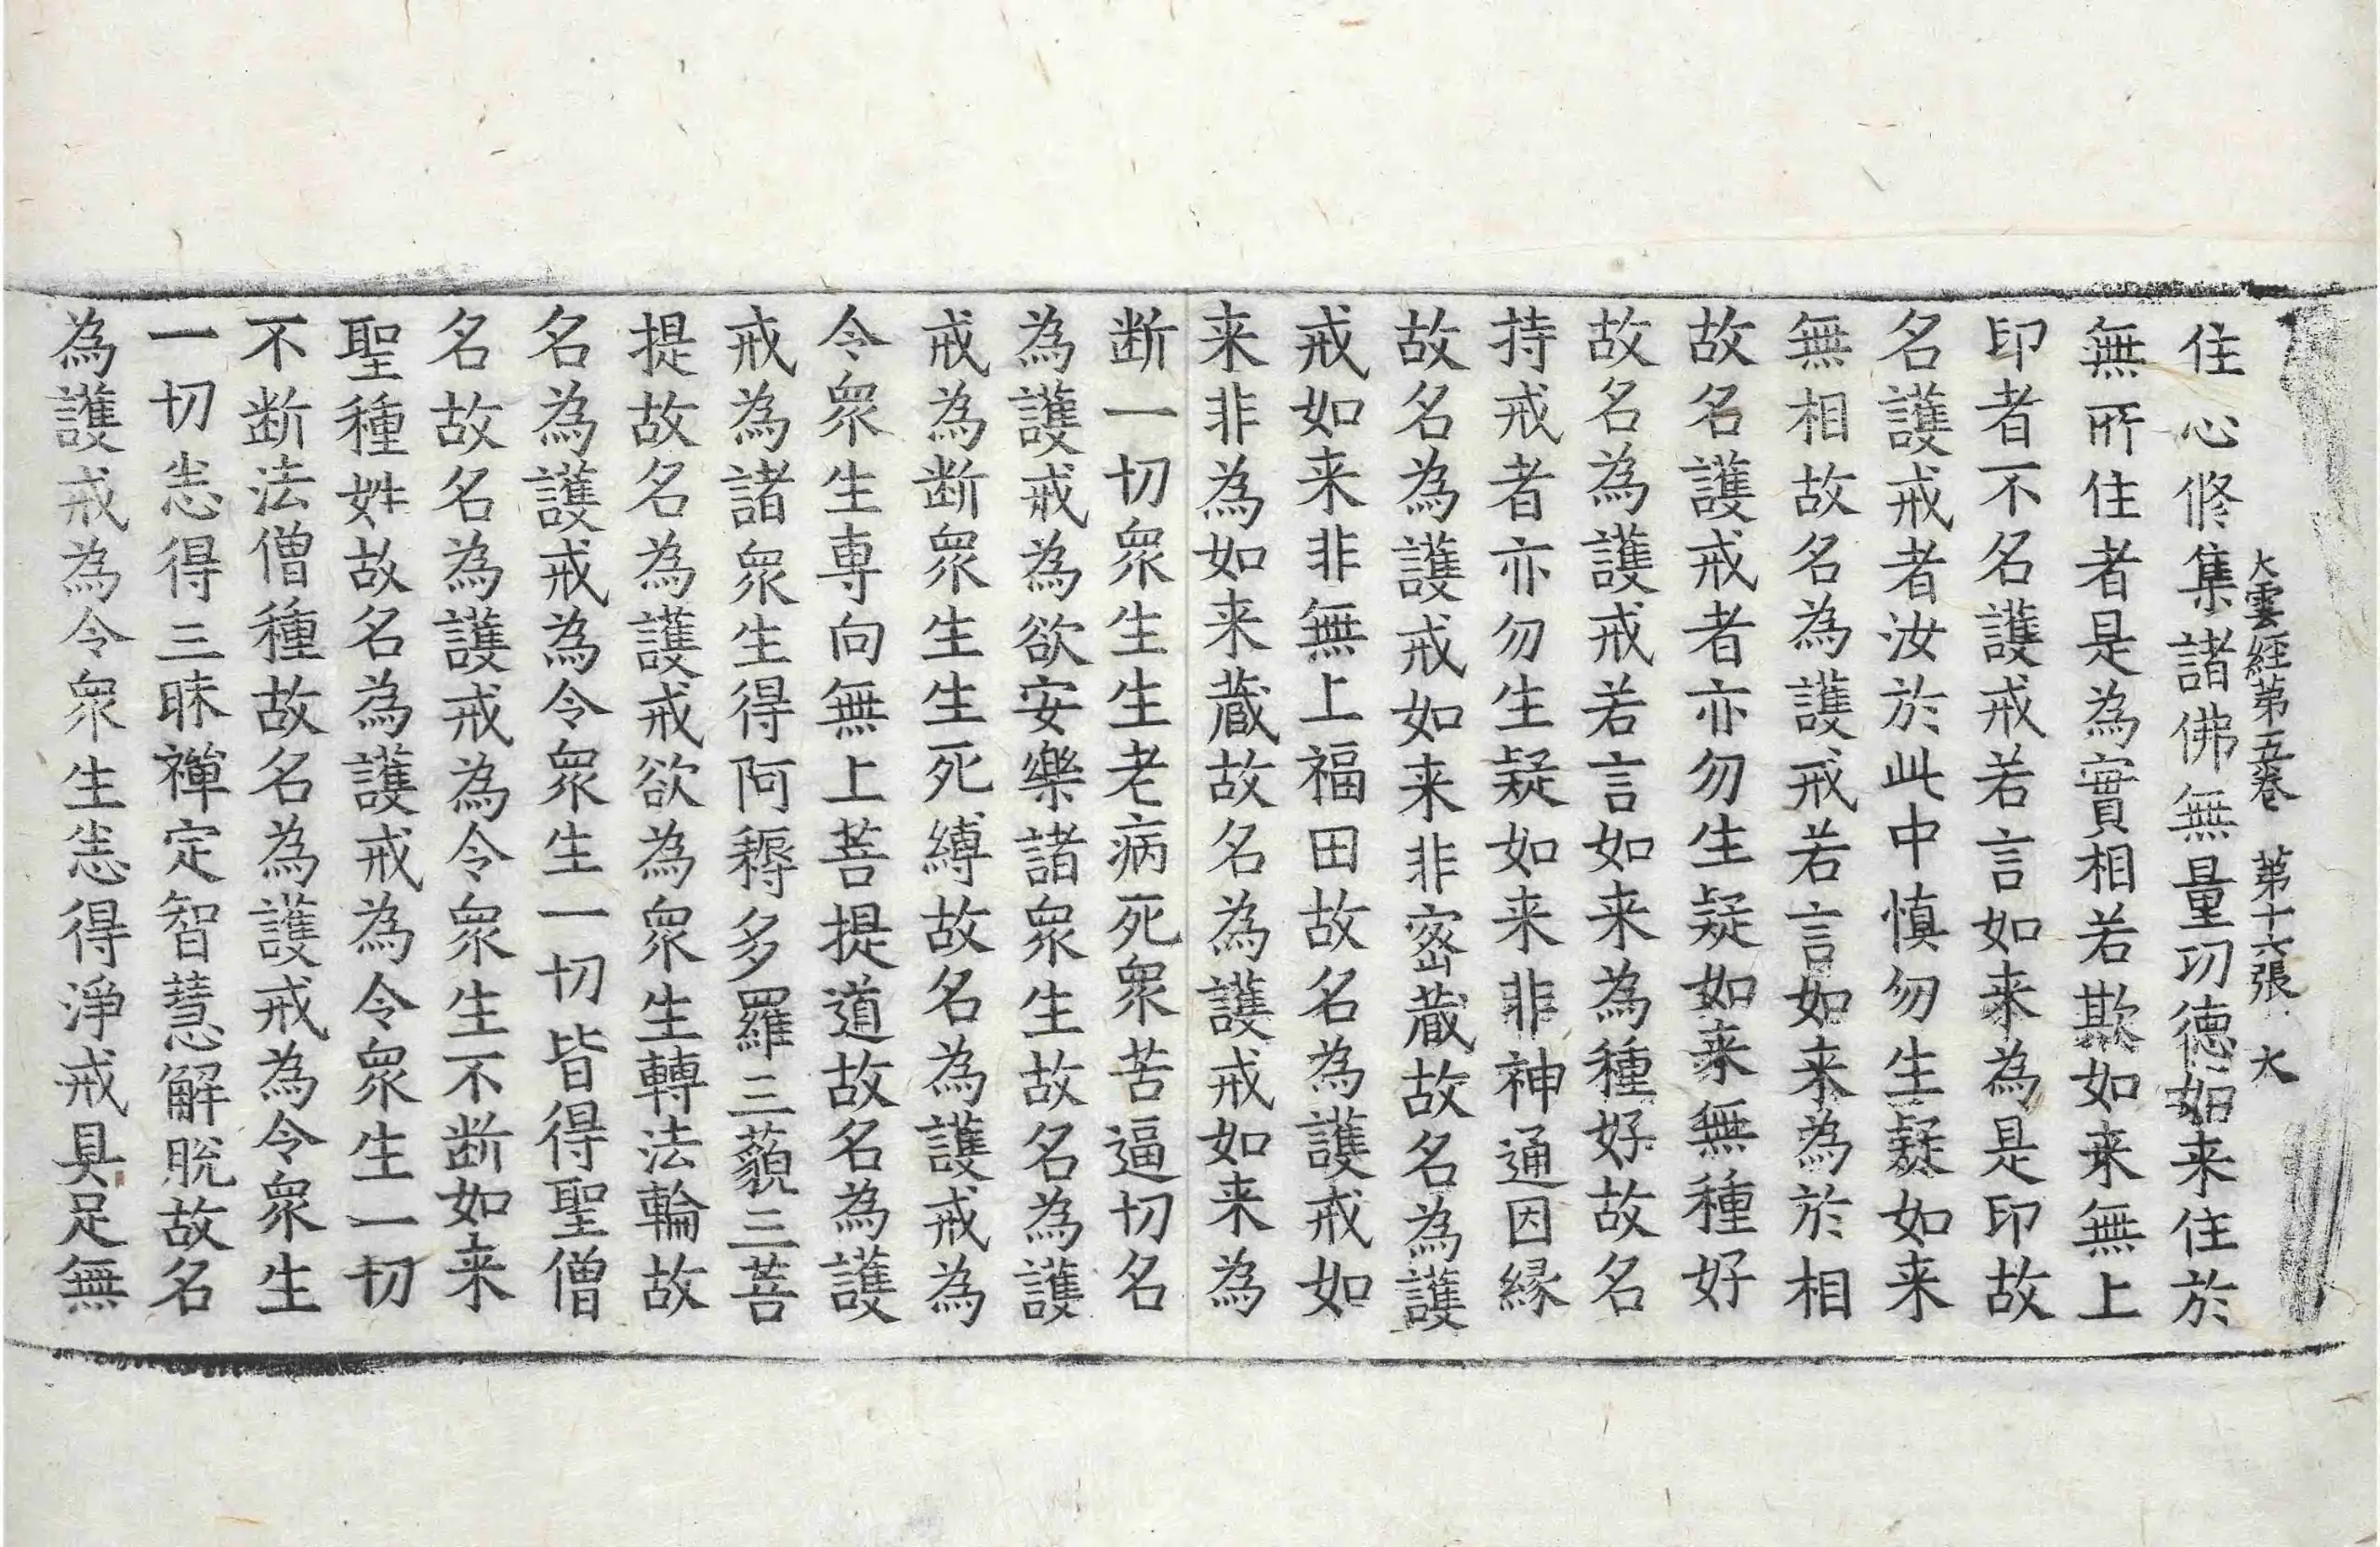 大雲経第五巻　第十六張　大
住心修集諸佛無量功徳如来住於
無所住者是為實相若欺如来無上
印者不名護戒若言如来為是印故
名護戒者汝於此中慎勿生疑如来
無相故名為護戒若言如来為於相
故名護戒者亦勿生疑如来無種好
故名為護戒若言如来為種好故名
持戒者亦勿生疑如来非神通因縁
故名為護戒如来非宻蔵故名為護
戒如来非無上福田故名為護戒如
来非為如来蔵故名為護戒如来為
断一切衆生生老病死衆苦逼切名
為護戒為欲安樂諸衆生故名為護
戒為断衆生生死縛故名為護戒為
令衆生専向無上菩提道故名為護
戒為諸衆生得阿耨多羅三藐三菩
提故名為護戒欲為衆生轉法輪故
名為護戒為令衆生一切皆得聖僧
名故名為護戒為令衆生不断如来
聖種姓故名為護戒為令衆生一切
不断法僧種故名為護戒為令衆生
一切恙得三昧禅定智慧解脱故名
為護戒為令衆生恙得淨戒具足無